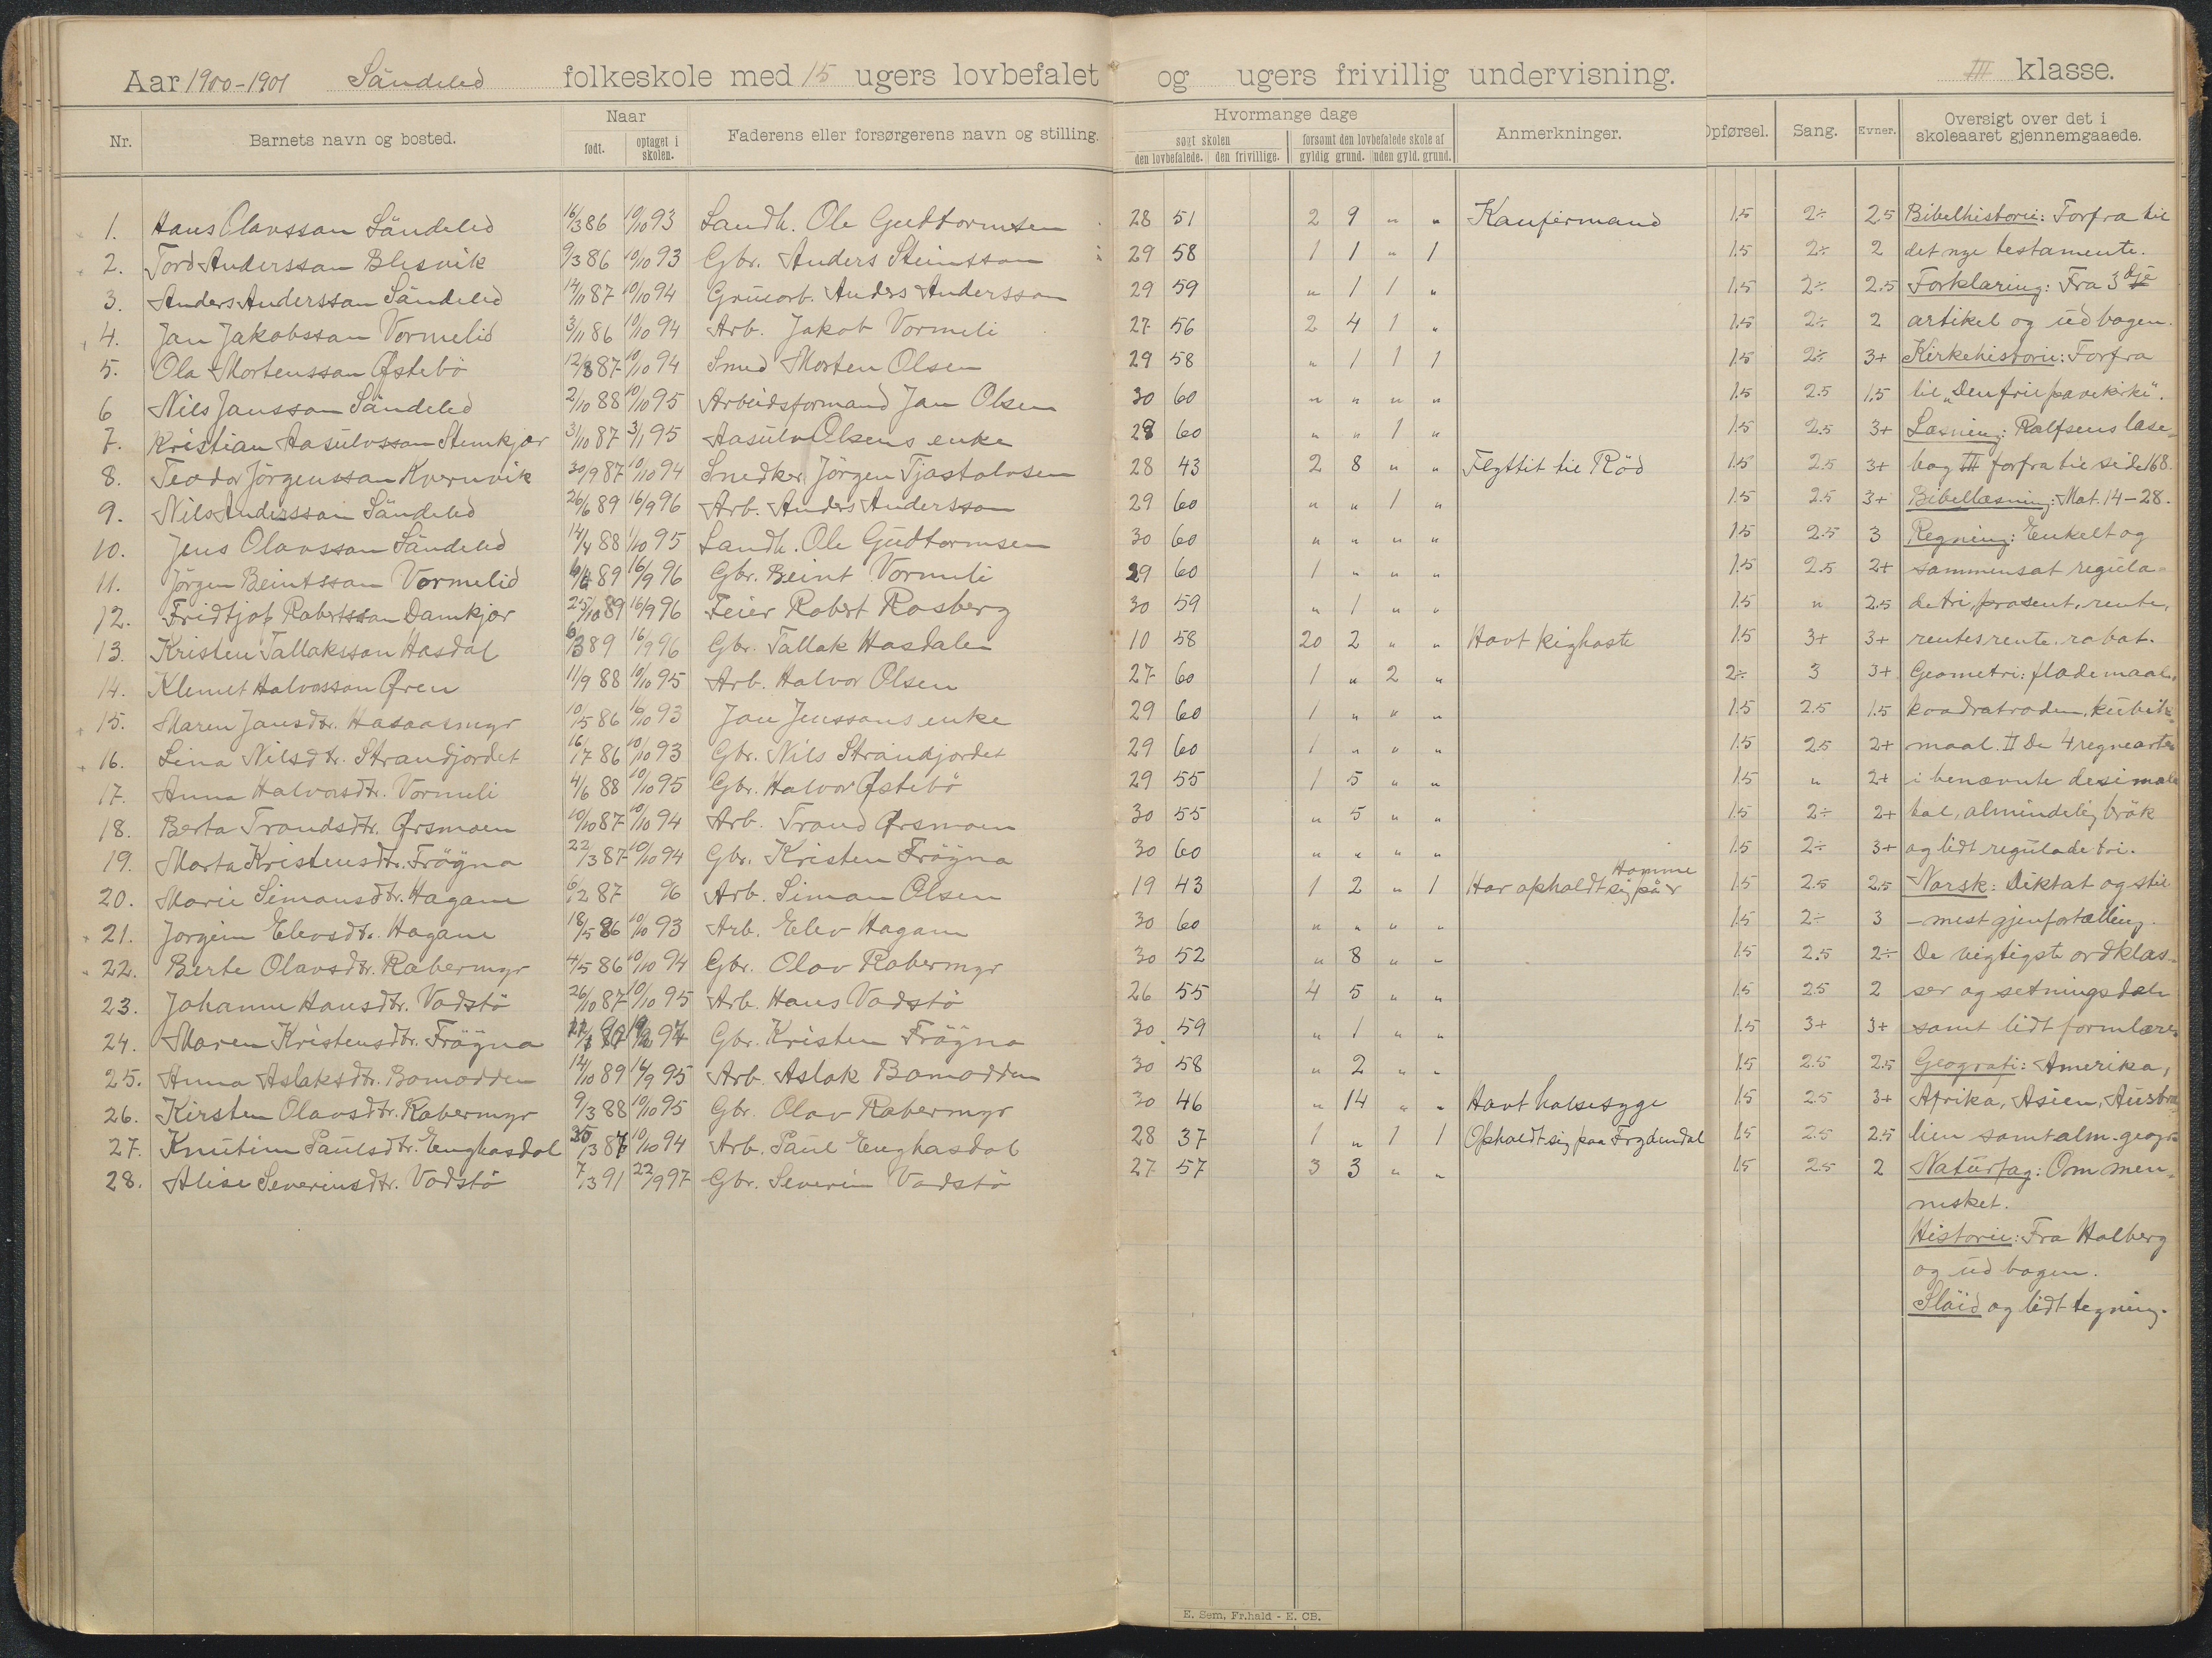 Aar 1900-1901 Søndeled folkeskole med 15 ugers lovbefalet og ugers frivillig undervisning. III klasse.
Nr. Barnets navn og bosted. Naar født. optaget i skolen. Faderens eller forsørgerens navn og stilling. Hvormange dage søgt skolen den lovbefalede. den frivillige. forsømt den lovbefalede skole af gyldig grund. uden gyld. grund. Anmerkninger. Opførsel. Sang. Evner. Oversigt over det i skoleaaret gjennemgaaede.
1. Hans Olavsson Söndeled 16/3 86 10/10 93 Landh. Ole Gudtormsen 28 51 2 9 " " Konfirmand 1.5 2÷ 2.5 Bibelhistorie: Forfra til
2. Tord Andersson Blesvik 9/3 86 10/10 93 Gbr. Anders Steintson 29 58 1 1 " 1 1.5 2÷ 2 det nye testamente.
3. Anders Andersson Söndeled 14/11 87 10/10 94 Grucarb. Anders Andersson 29 59 " 1 1 " 1.5 2÷ 2.5 Forklaring: Fra 3dje
4. Jan Jakobsson Vormelid 3/11 86 10/10 94 Arb. Jakob Vormeli 27 56 2 4 1 " 1.5 2÷ 2 artikel og ud bogen.
5. Ola Mortensson Østebö 12/8 87 10/10 94 Smed Morten Olsen 29 58 " 1 1 1 1.5 2÷ 3+ Kirkehistorie: Forfra
6 Nils Jansson Söndeled 2/10 88 10/10 95 Arbeidsformand Jan Olsen 30 60 " " " " 1.5 2.5 1.5 til „Den frie pavekirke".
7. Kristian Aasulvsson Stenkjær 31/10 87 3/1 95 Aasulv Olsens enke 28 60 " " 1 " 1.5 2.5 3+ Læsning: Rolfsens læse-
8. Teodor Jörgensson Kvernvik 30/9 87 10/10 94 Snedker Jörgen Tjostolvsen 28 43 2 8 " " Flyttit til Röd 1.5 2.5 3+ bog III forfra til side 168.
9. Nils Andersson Söndeled 26/6 89 16/9 96 Arb. Anders Andersson 29 60 " " 1 " 1.5 2.5 3+ Bibellæsning: Mat. 14-28.
10. Jens Olavsson Söndeled 14/4 88 1/10 95 Landh. Ole Gudtormsen 30 60 " " " " 1.5 2.5 3 Regning: Enkelt og
11. Jörgen Beintsson Vormelid 89 16/9 96 Gbr. Beint Vormeli 29 60 1 " " " 1.5 2.5 2+ sammensat regula-
12. Fridtjof Robertsson Damkjær 25/10 89 16/9 96 Feier Robert Rosberg 30 59 " 1 " " 1.5 " 2.5 detri, prosent, rente,
13. Kristen Tallaksson Hasdal 6/3 89 16/9 96 Gbr. Tallak Hasdalen 10 58 20 2 " " Havt kighoste 1.5 3+ 3+ rentesrente. rabat.
14. Klemet Halvorsson Øren 11/9 88 10/10 95 Arb. Halvor Olsen 27 60 1 " 2 " 2÷ 3 3+ Geometri: flademaal,
15. Maren Jansdtr. Hasaasmyr 10/5 86 16/10 93 Jan Jenssons enke 29 60 1 " " " 1.5 2.5 1.5 kvadratroden, kubik-
16. Lina Nilsdtr. Strandjordet 16/7 86 10/10 93 Gbr. Nils Strandjordet 29 60 1 " " " 1.5 2.5 2+ maal. II De 4 regnearter
17. Anna Halvorsdtr. Vormeli 4/6 88 10/10 95 Gbr. Halvor Østebö 29 55 1 5 " " 1.5 " 2+ i benævnte desimal-
18. Berta Trondsdtr. Ørsmoen 10/10 87 10/10 94 Arb. Trond Ørsmoen 30 55 " 5 " " 1.5 2÷ 2+ tal, almindelig brök
19. Marta Kristensdtr. Frögna 22/3 87 10/10 94 Gbr. Kristen Frögna 30 60 " " " " 1.5 2÷ 3+ og lidt regulade tri.
20. Marie Simonsdtr. Hagane 6/2 87 96 Arb. Simon Olsen 19 43 1 2 " 1 Har opholdt sig på Homme 1.5 2.5 2.5 Norsk: Diktat og stil
21. Jorgine Elevsdtr. Hagane 18/5 86 10/10 93 Arb. Elev Hagane 30 60 " " " " 1.5 2÷ 3 - mest gjenfortælling.
22. Berte Olavsdtr. Rabermyr 4/5 86 10/10 94 Gbr. Olav Rabermyr 30 52 " 8 " " 1.5 2.5 2÷ De vigtigste ordklas-
23. Johanne Hansdtr. Vodstö 26/10 87 10/10 95 Arb. Hans Vodstö 26 55 4 5 " " 1.5 2.5 2 ser og setningsdele
24. Maren Kristensdtr. Frögna Gbr. Kristen Frögna 30 59 " 1 " " 1.5 3+ 3+ samt lidt formlære.
25. Anna Aslaksdtr. Bomodden 14/10 89 16/9 95 Arb. Aslak Bomodden 30 58 " 2 " " 1.5 2.5 2.5 Geografi: Amerika,
26. Kirsten Olavsdtr. Rabermyr 9/3 88 10/10 95 Gbr. Olav Rabermyr 30 46 " 14 " " Havt halsesyge 1.5 2.5 3+ Afrika, Asien, Austra-
27. Knutine Paulsdtr. Enghasdal 87 10/10 94 Arb. Paul Enghasdal 28 37 1 " 1 1 Opholdt sig paa Frydendal 1.5 2.5 2.5 lien samt alm. geogr.
28. Alise Severinsdtr. Vodstö 7/3 91 22/9 97 Gbr. Severin Vodstö 27 57 3 3 " " 1.5 2.5 2 Naturfag: Om men-
nesket.
Historie: Fra Holberg
og ud bogen.
Slöid og lidt tegning.
E. Sem, Fr.hald - E. CB.